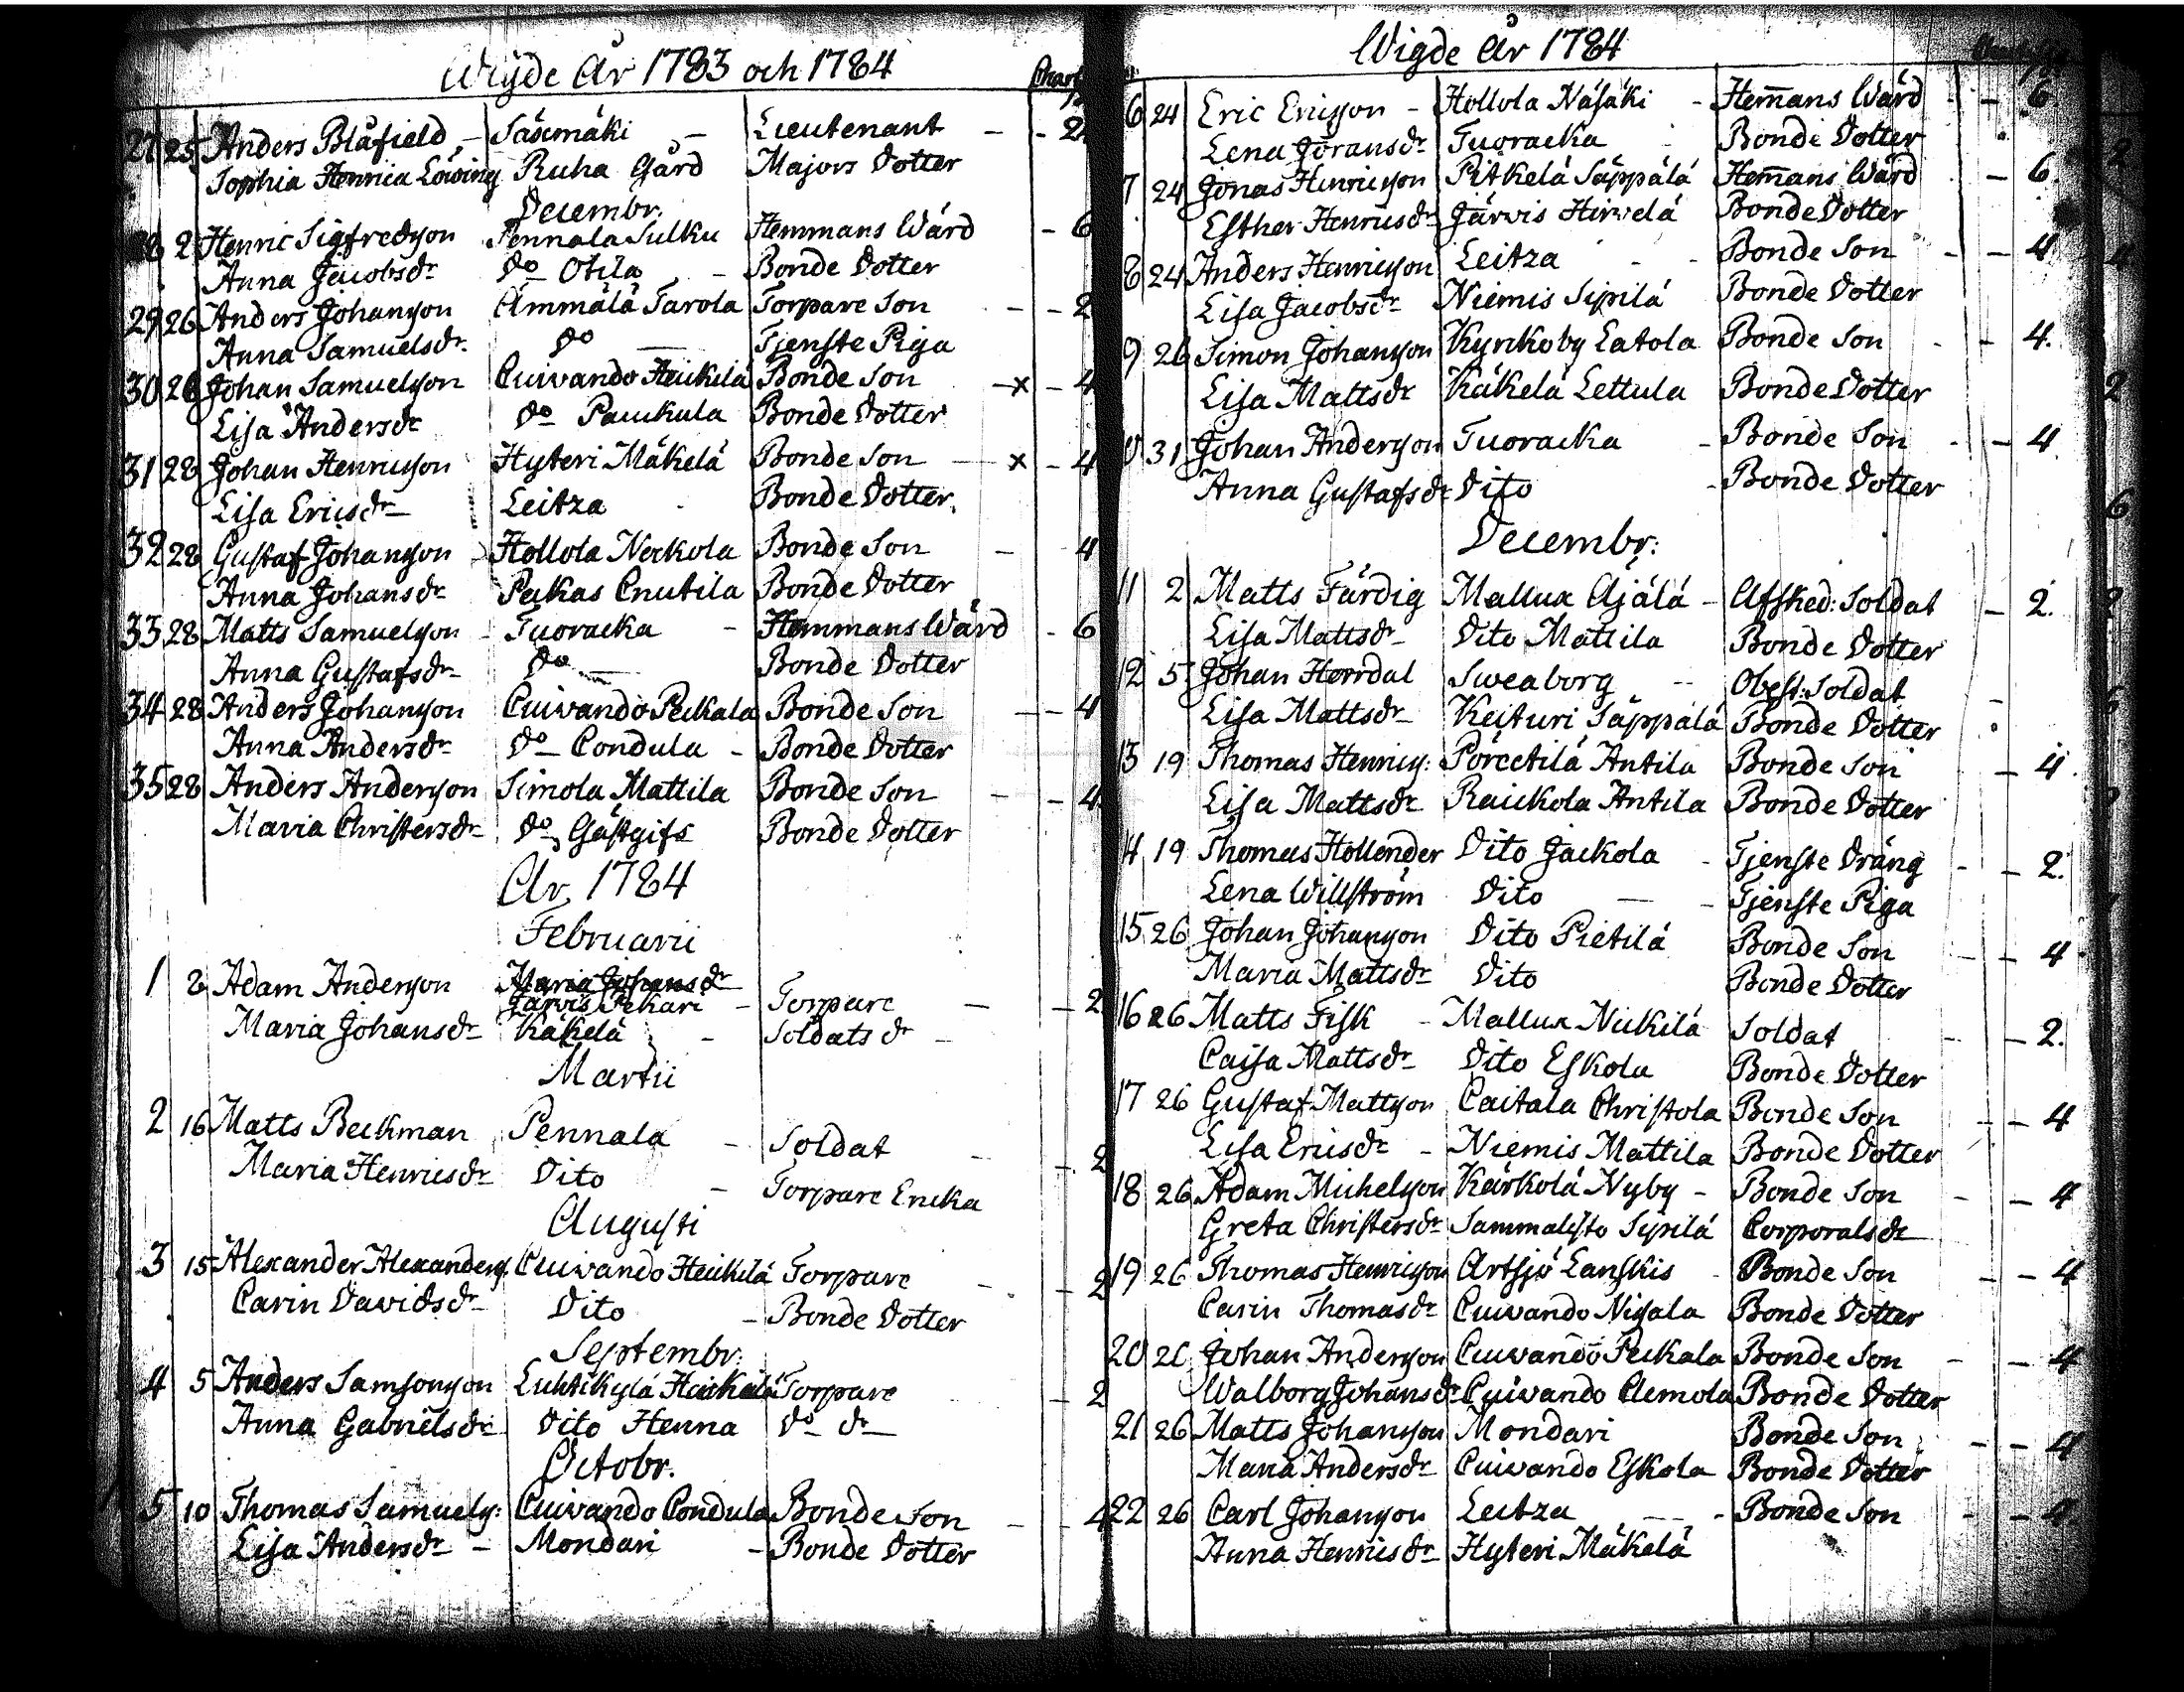 Wigde År 1783 och 1784
27 25 Anders Blåfield - Säxmäki - Lieutenant - - 2
Sophia Henrica Löwing Ruha Gård Majors Dotter
Decembr.
28 2 Henric Sigfredson Pennala Sulku Hemmans Wärd - 6
Anna Jacobsdr Do Otila - Bonde Dotter
29 26 Anders Johanson Ammälä Tarola Torpare Son - - 2
Anna Samuelsdr. Do Tjenste Piga
30 26 Johan Samuelson Cuivando Heickilä Bonde Son - x - 4
Lisa Andersdr Do Paickula Bonde Dotter
31 28 Johan Henricson Hyteri Mäkelä Bonde Son - x - 4
Lisa Ericsdr Leitza Bonde Dotter.
32 28 Gustaf Johanson Hollola Neckola Bonde Son - 4
Anna Johansdr Pakas Cnutila Bonde Dotter
33 28 Matts Samuelson - Tuoracka - Hemmans Wärd - 6
Anna Gustafsdr Do Bonde Dotter
34 28 Anders Johanson Cuivando Peckala Bonde Son - - 4
Anna Andersdr Do Condula - Bonde Dotter
35 28 Anders Anderson Simola Mattila Bonde Son - - 4
Maria Christersdr Do Gästgifs Bonde Dotter
År 1784
Februarii
Maria Johansdr
1 2 Adam Anderson Järvis Pekari - Torpare - - 2
Maria Johansdr Käkelä - Soldats dr -
Martii
2 16 Matts Beckman Pennala - Soldat - - 2
Maria Henricsdr Dito - Torpare Encka
Augusti
3 15 Alexander Alexanders. Cuivando Heickilä Torpare - - 2
Carin Davidsdr Dito - Bonde Dotter
Septembr:
4 5 Anders Samsonson Luhtikylä Torpare - 2
Anna Gabrielsdr Dito Henna Do dr
Octobr.
5 10 Thomas Samuels: Cuivando Condula Bonde Son - - 4
Lisa Andersdr - Mondari - Bonde Dotter
Wigde År 1784
6 24 Eric Ericson - Hollola Näsäki - Hem̄ans Wärd - - 6
Lena Göransdr Tuoracka - Bonde Dotter
7 24 Jonas Henricson Pitkelä Säppälä Hem̄ans Wärd - - 6
Esther Henricsdr Järvis Hirvelä Bonde Dotter
8 24 Anders Henricson Leitza - - Bonde Son - - 4
Lisa Jacobsdr Niemis Sipilä Bonde Dotter
9 26 Simon Johanson Kyrckoby Latola Bonde Son - - 4.
Lisa Mattsdr Käkelä Lettula Bonde Dotter
10 31 Johan Anderson Tuoracka - Bonde Son - - 4
Anna Gustafsdr Dito - Bonde Dotter
Decembr:
11 2 Matts Färdig Mallux Ajälä - Afsked: Soldat - 2.
Lisa Mattsdr Dito Mattila Bonde Dotter
12 5 Johan Horrdal Sweaborg - Obest: Soldat -
Lisa Mattsdr Keituri Säppälä Bonde Dotter
13 19 Thomas Henrics: Antila Bonde Son - 4
Lisa Mattsdr Raickola Antila Bonde Dotter
14 19 Thomas Hollender Dito Jackola - Tjenste Dräng - - 2.
Lena Willström Dito - - Tjenste Piga
15 26 Johan Johanson Dito Pietilä Bonde Son - - 4
Maria Mattsdr Dito Bonde Dotter
16 26 Matts Fisk - Mallux Nickilä Soldat - - 2.
Caisa Mattsdr Dito Eskola Bonde Dotter
17 26 Gustaf Mattson Caitala Christola Bonde Son - - 4
Lisa Ericsdr - Niemis Mattila Bonde Dotter
18 26 Adam Michelson Kärkölä Nyby - Bonde Son - - 4
Greta Christersdr Sammalisto Sipilä Corporalsdr
19 26 Thomas Henricson Artsjö Lanskis - Bonde Son - - 4
Carin Thomasdr Cuivando Nigala Bonde Dotter
20 26 Johan Anderson Cuivando Peckala Bonde Son - - 4
Walborg Johansdr Cuivando Clemola Bonde Dotter
21 26 Matts Johanson Mondari Bonde Son - - 4
Maria Andersdr Cuivando Eskola Bonde Dotter
22 26 Carl Johanson Leitza - - Bonde Son - - 4
Anna Henricsdr Hyteri Mäkelä